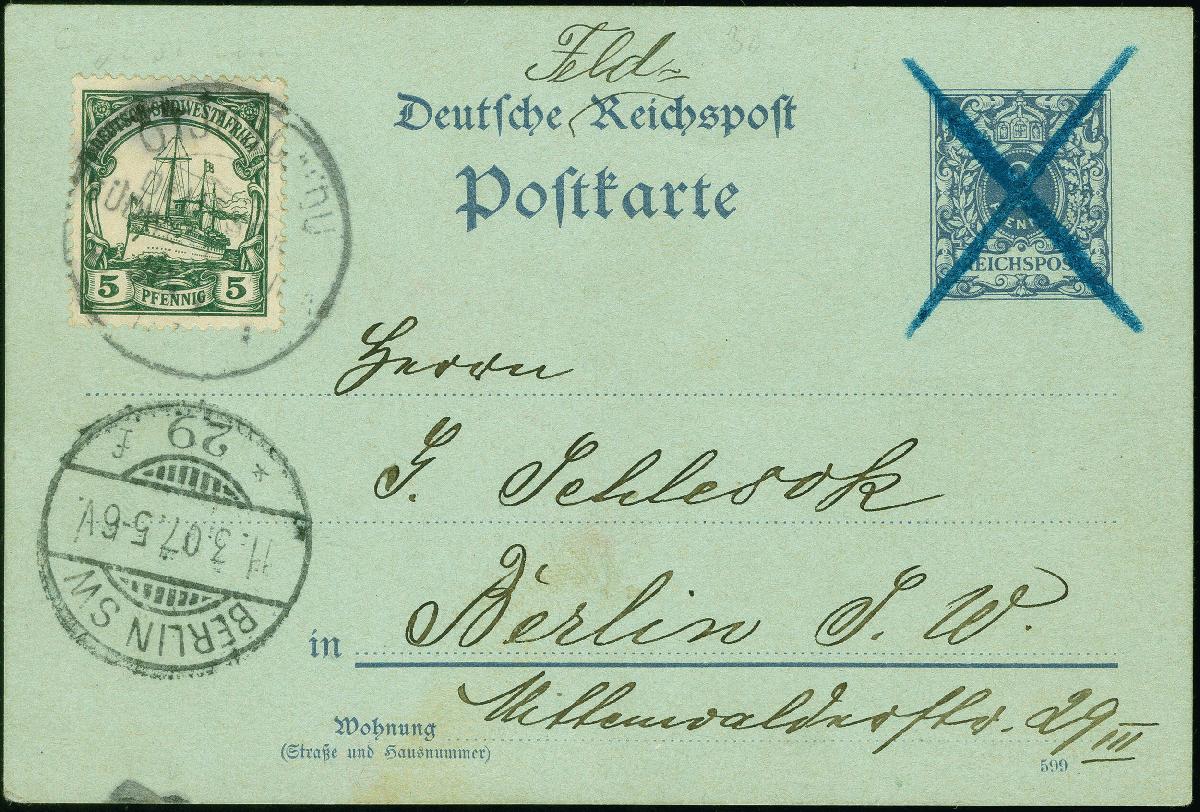 Feld-
Deutsche Reichspost
Postkarte
DEUTSCH-SÜDWESTAFRIKA
5 PFENNIG 5
REICHSPOST
Herrn
G. Schlesok
in Berlin S. W.
Wohnung Mittenwalderstr. 29 III
(Straße und Hausnummer)
599
29
11.3.07.5-6V.
BERLIN SW